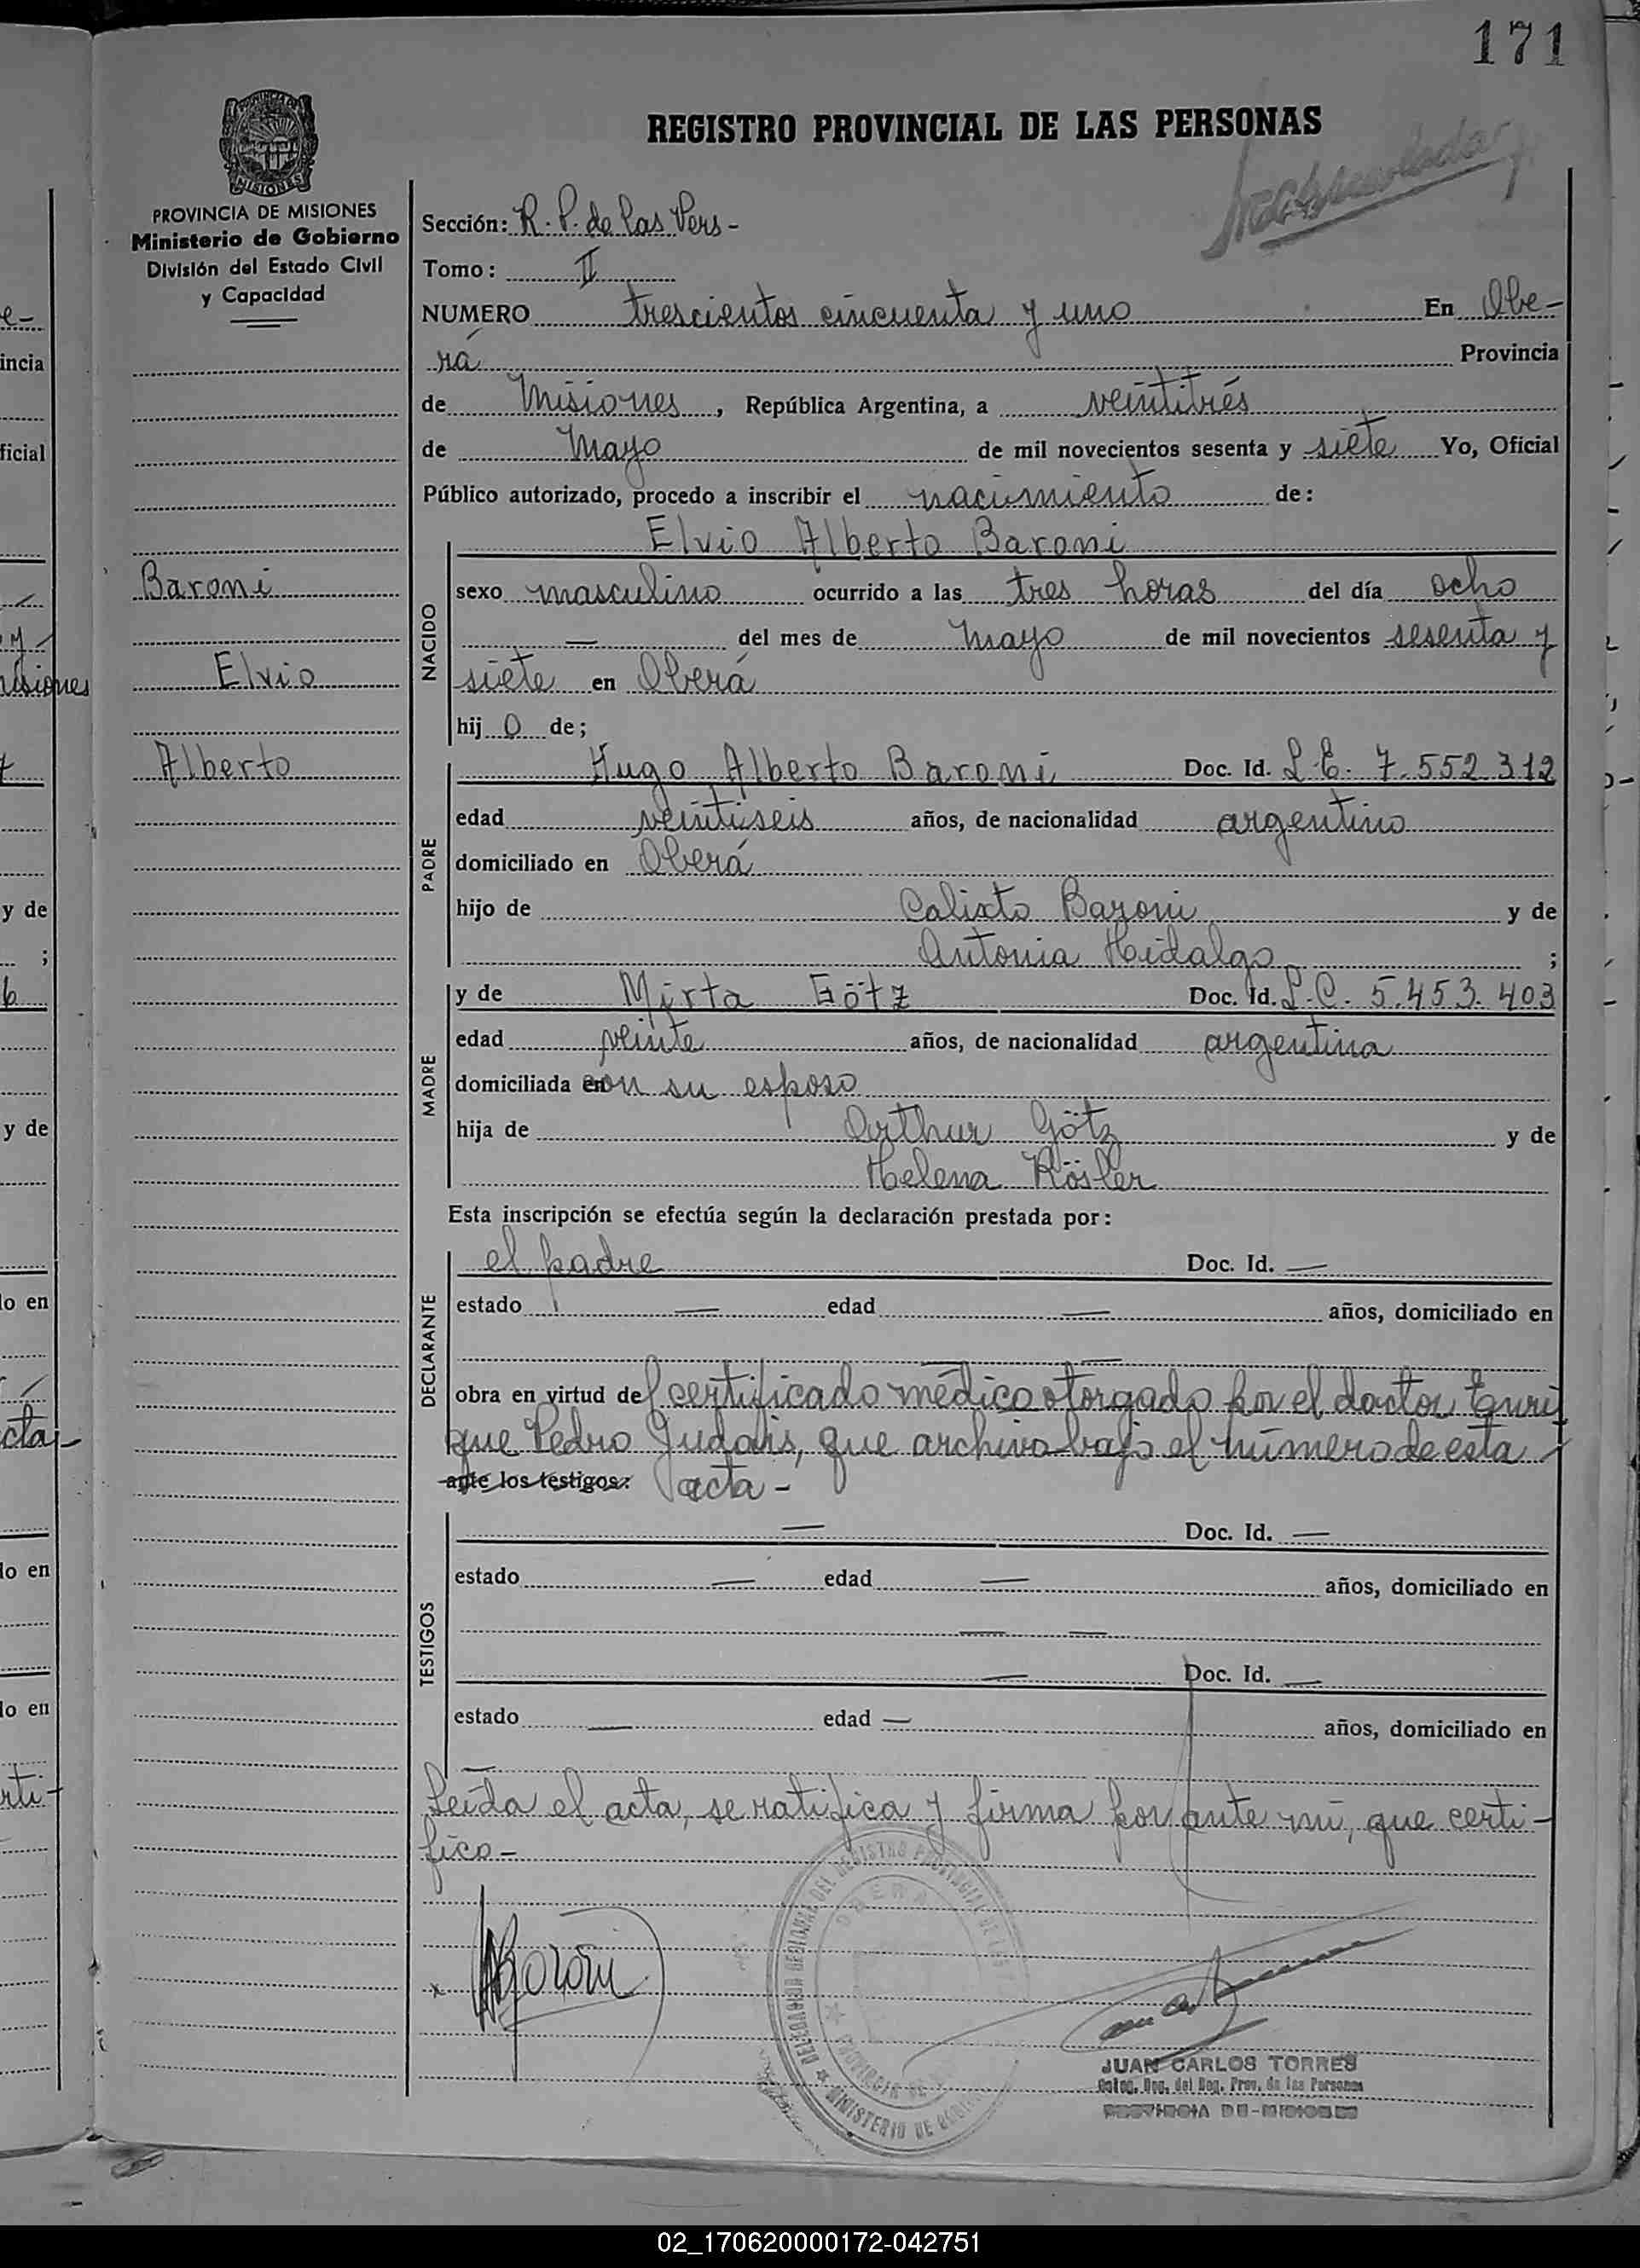 171
REGISTRO PROVINCIAL DE LAS PERSONAS
PROVINCIA DE
MISIONES
PROVINCIA DE MISIONES
Ministerio de Gobierno
División del Estado Civil
y Capacidad
Baroni
Elvio
Alberto
Sección: R. P. de las Pers-
Tomo: II
NUMERO trescientos cincuenta y uno En Obe-
rá Provincia
de Misiones, República Argentina, a veintitrés
de Mayo de mil novecientos sesenta y siete Yo, Oficial
Público autorizado, procedo a inscribir el nacimiento de:
NACIDO
Elvio Alberto Baroni
sexo masculino ocurrido a las tres horas del día ocho
— del mes de mayo de mil novecientos sesenta y
siete en Oberá
hijo de;
PADRE
Hugo Alberto Baroni Doc. Id. L.E. 7.552.312
edad veintiseis años, de nacionalidad argentino
domiciliado en Oberá
hijo de Calixto Baroni y de
Antonia Hidalgo ;
MADRE
y de Mirta Götz Doc. Id. L.C. 5.453.403
edad veinte años, de nacionalidad argentina
domiciliada en con su esposo
hija de Arthur Götz y de
Helena Rösler
Esta inscripción se efectúa según la declaración prestada por:
DECLARANTE
el padre Doc. Id. —
estado — edad — años, domiciliado en
— —
obra en virtud del certificado médico otorgado por el doctor Enri
que Pedro Judais, que archivo bajo el número de esta
ante los testigos: acta -
TESTIGOS
— Doc. Id. —
estado — edad — años, domiciliado en
— —
— Doc. Id. —
estado — edad — años, domiciliado en
—
Leída el acta, se ratifica y firma por ante mí, que certi-
fico-
x Baroni
DELEGACION REGIONAL DEL REGISTRO PROVINCIAL DE LAS
OBERA
PROVINCIA DE
MINISTERIO DE GOBIERNO
JUAN CARLOS TORRES
del Reg. Prov. de las Personas
PROVINCIA DE MISIONES
ncia
ficial
y de
;
y de
lo en
lo en
lo en
02_170620000172-042751